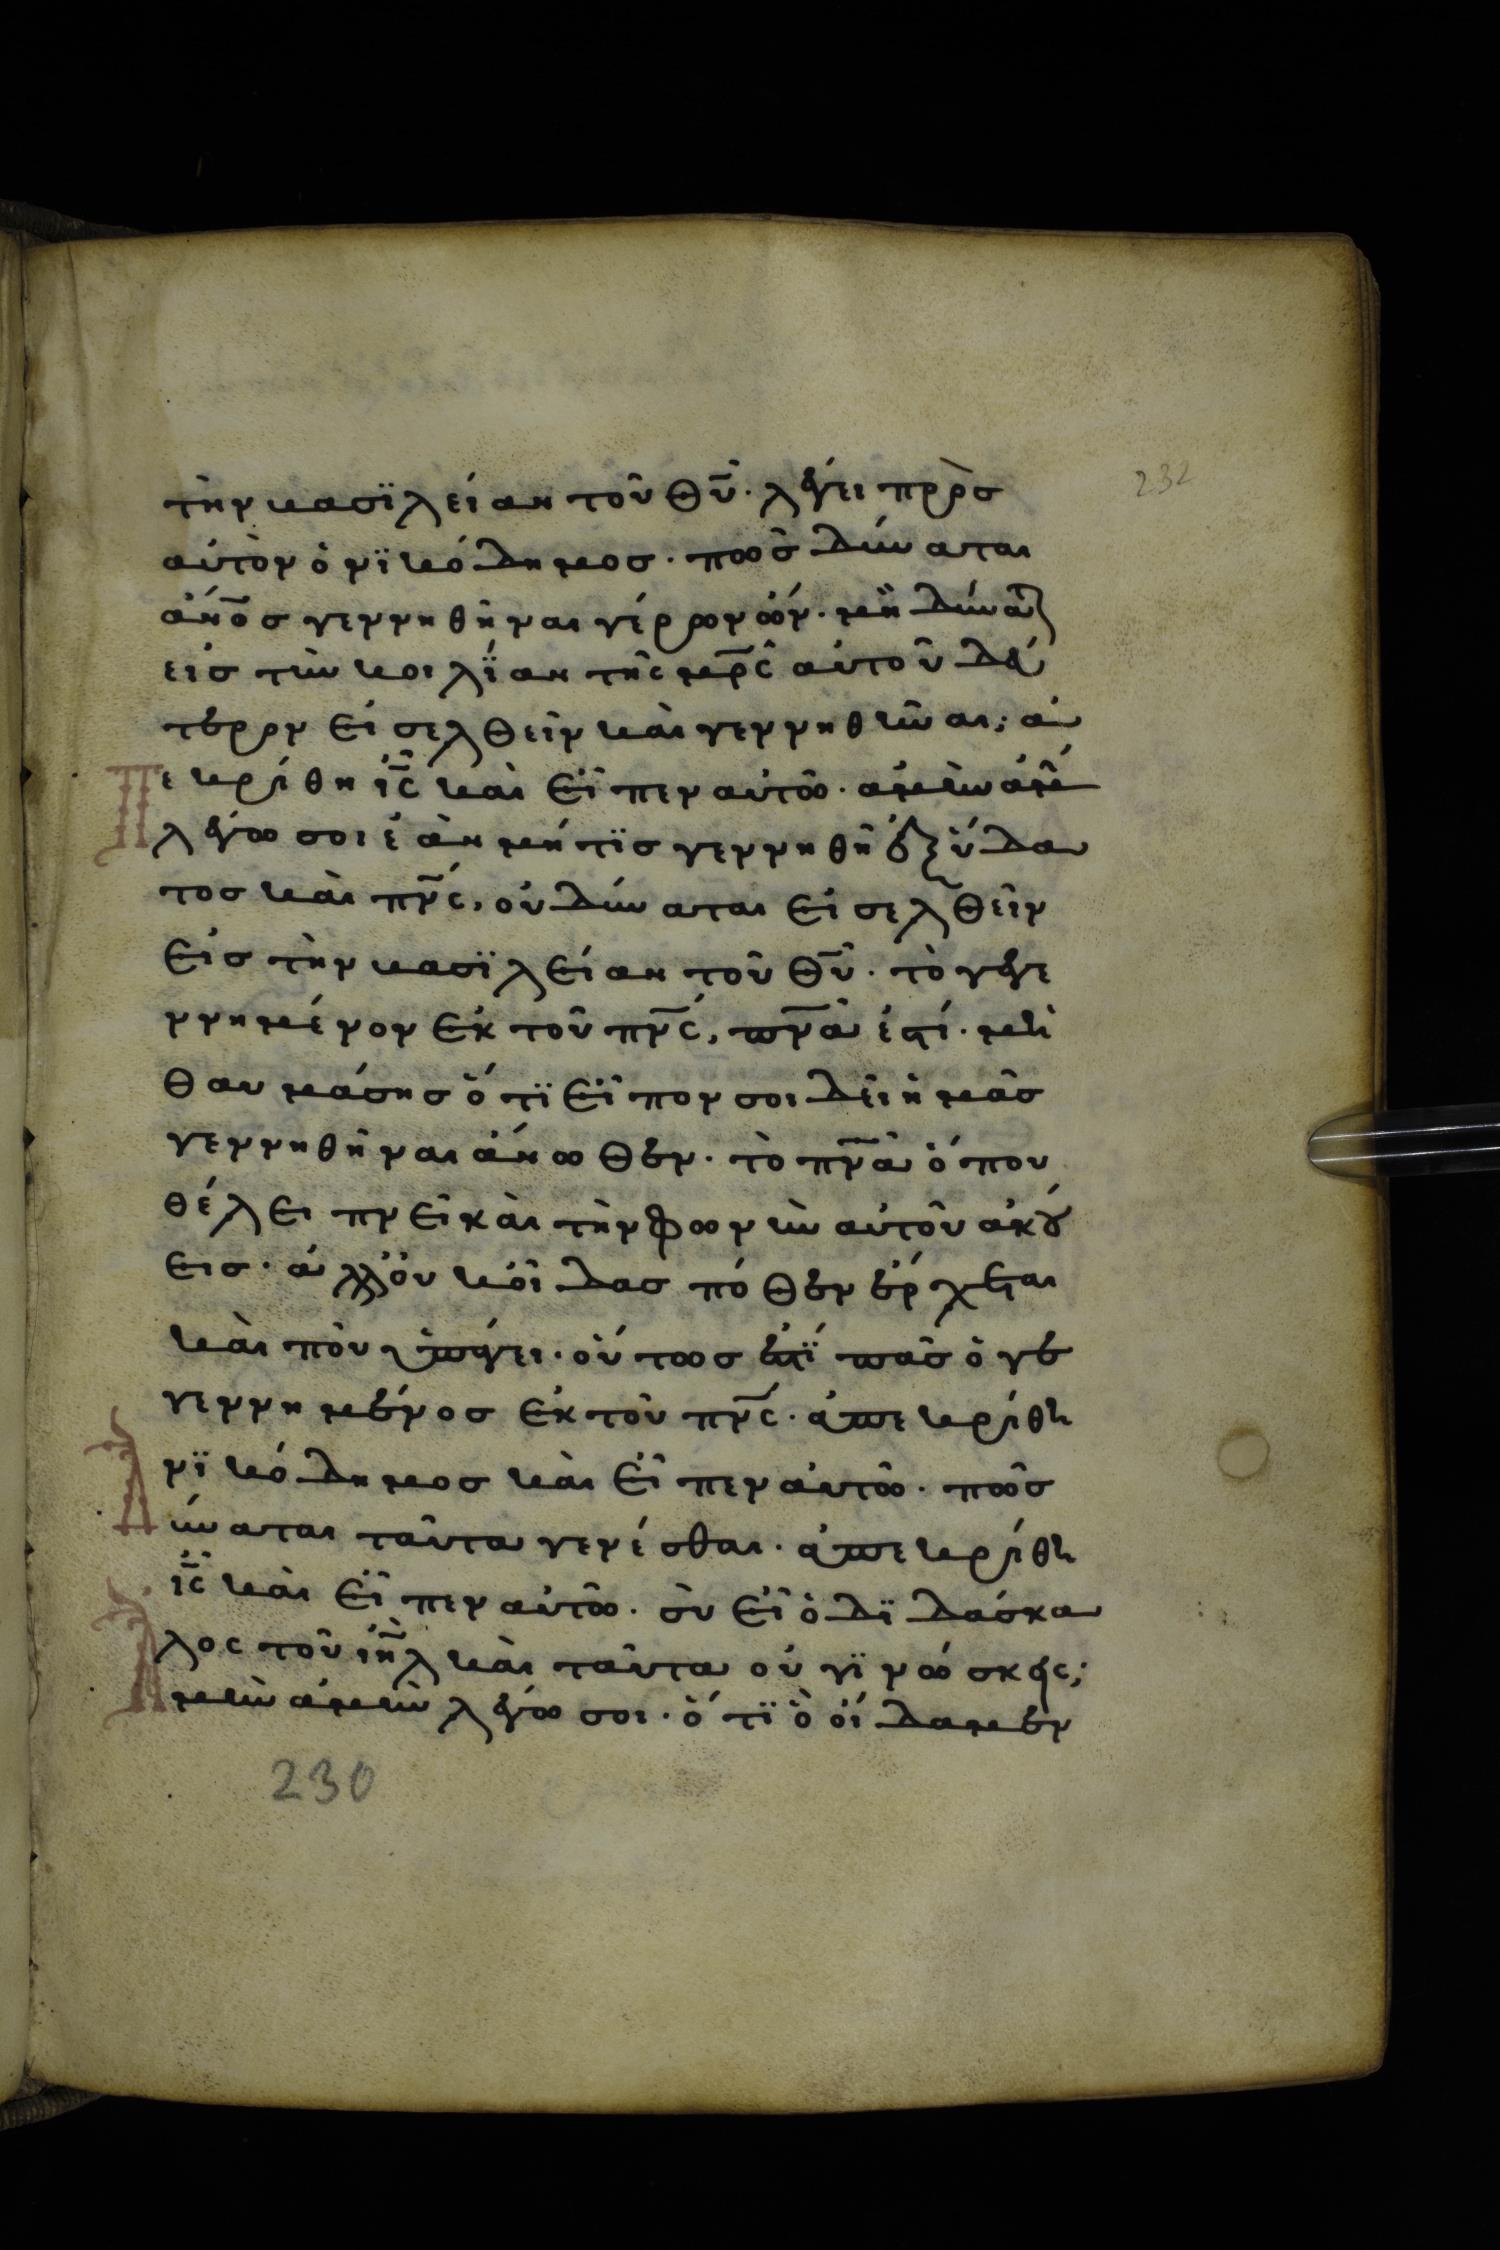 τὴν βασϊλείαν τοῦ θῦ· λέγει πρὸσ
232
αὐτὸν ὁ νϊκόδημοσ· πῶσ δύναται
ἄνοσ γεννηθῆναι γέρρων ὤν· μὴ δύνα
εἰσ τὴν κοιλΐαν τῆς μρς αὐτοῦ δεύ
τερον εἰσελθεῖν καὶ γεννηθῆναι; ἀ
Π εκρίθη ἰς καὶ εἶπεν αὐτῶ· ἀμὴν ἀμὴ
λέγω σοι ἐὰν μήτϊσ γεννηθῆ ἐξ ὕδα
τοσ καὶ πνς, οὐ δύναται εἰσελθεῖν
εἰσ τὴν βασϊλείαν τοῦ θῦ· τὸ γεγε
ννημένον ἐκ τοῦ πνς, πνα ἐστί· μὴ
θαυμάσησ ὅτϊ εἶπον σοι δεῖ ἡμᾶσ
γεννηθῆναι ἄνωθεν· τὸ πνα ὅπου
θέλει πνεῖ καὶ τὴν φωνὴν αὐτοῦ ἀκού
εισ· ἀλλ' οὐκ οἶδασ πόθεν ἔρχεται
καὶ ποῦ ὑπάγει· οὕτωσ ἐστΐ πᾶσ ὁ γε
γεννημένοσ ἐκ τοῦ πνς· ἀπεκρίθη
νϊκόδημοσ καὶ εἶπεν αὐτῶ· πῶσ
Δ ύναται ταῦτα γενέσθαι· ἀπεκρίθη
ἰς καὶ εἶπεν αὐτῶ· σὺ εἶ ὁ δϊδάσκα
λος τοῦ ἰηλ καὶ ταῦτα οὐ γϊνώσκεις;
Ἀ μὴν ἀμὴν λέγω σοι· ὅτϊ ὃ οἴδαμεν
230